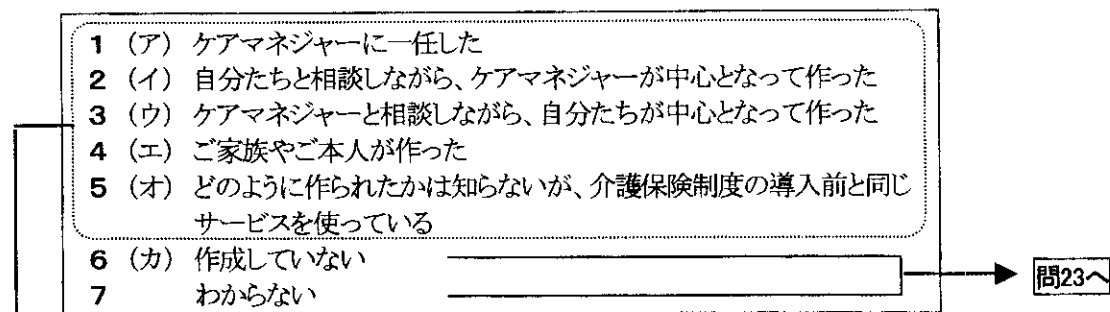 1 (ア) ケアマネジャーに一任した
2 (イ) 自分たちと相談しながら、ケアマネジャーが中心となって作った
3 (ウ) ケアマネジャーと相談しながら、自分たちが中心となって作った
4 (エ) ご家族やご本人が作った
5 (オ) どのように作られたかは知らないが、介護保険制度の導入前と同じ
サービスを使っている
6 (カ) 作成していない
7 わからない
問23へ